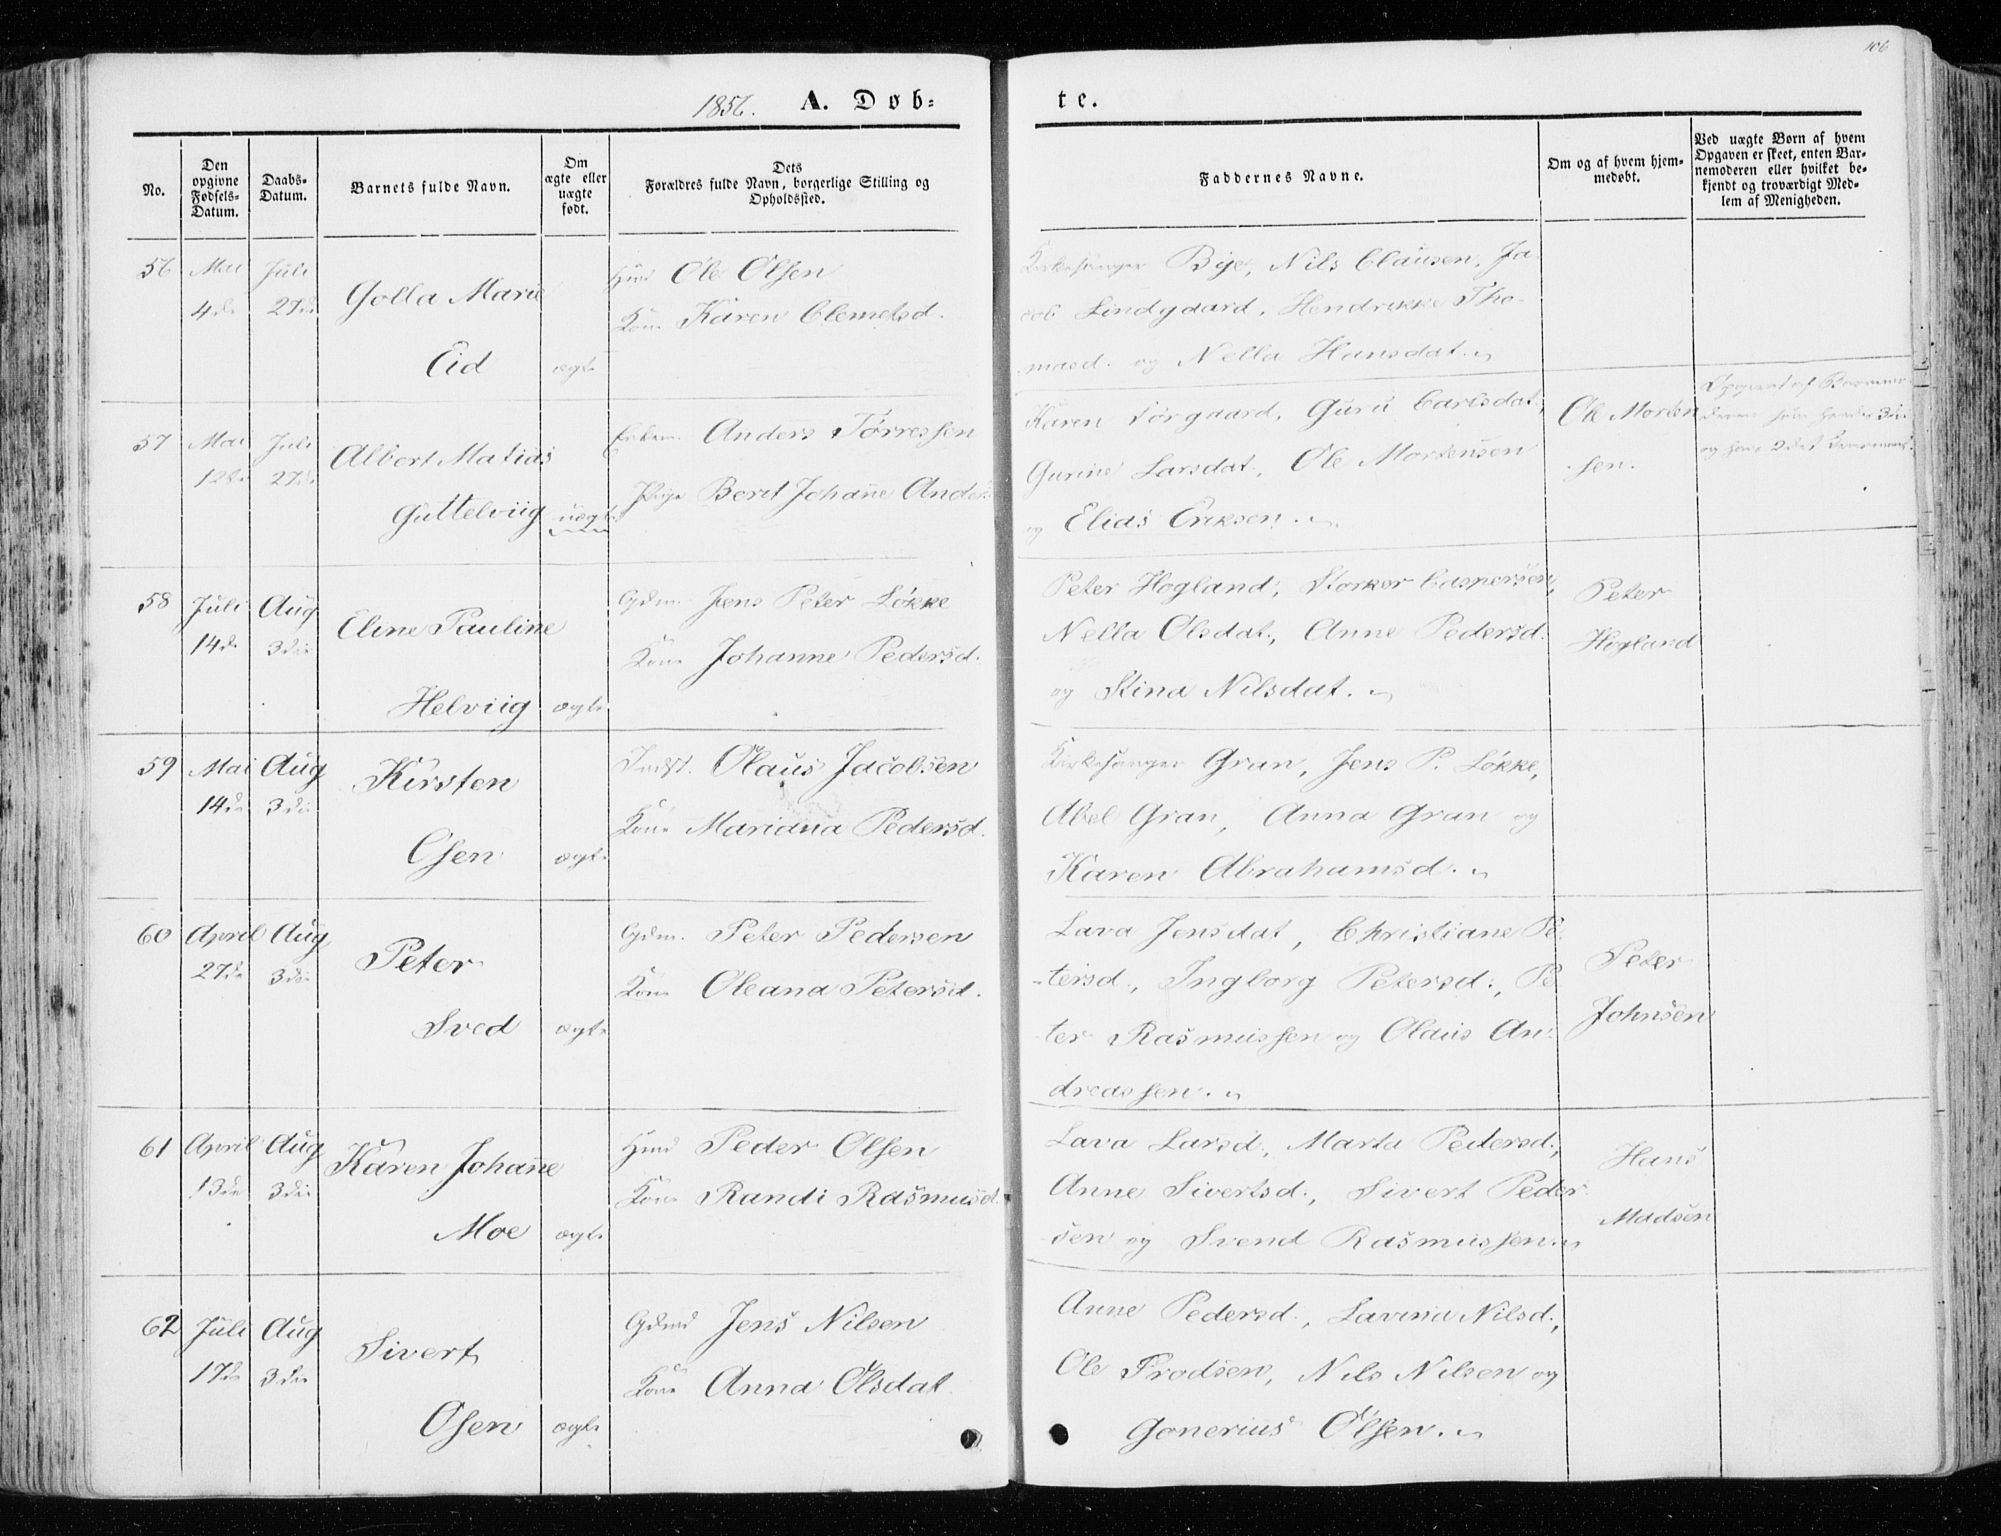 106
1856. A. Døb=
te.
No.
Den
opgivne
Fødsels-
Datum.
Daabs-
Datum.
Barnets fulde Navn.
Om
ægte eller
uægte
født.
Dets
Forældres fulde Navn, borgerlige Stilling og
Opholdssted.
Faddernes Navne.
Om og af hvem hjem-
medøbt.
Ved uægte Børn af hvem
Opgaven er skeet, enten Bar-
nemoderen eller hvilket be-
kjendt og troværdigt Med-
lem af Menigheden.
56 Mai Juli
4de 27de
Golla Marie
Eid ægte
Huusmd Ole Olsen
Kone Karen Clemetsd.
Kirkesanger Bye, Nils Clausen, Ja-
cob Lindgaard, Hendrikke Tho-
masd. og Nella Hansdat.
57 Mai Juli
12te 27de
Albert Matias
Guttelviig uægte
Enkem. Anders Torressen
Pige Berit Johanne Anders
Karen Forgaard, Guru Carlsdat.,
Gurine Larsdat., Ole Mortensen
og Elias Eriksen.
Ole Morten
sen.
Opgivet af Barnemo-
deren
58 Juli Aug
14de 3die
Eline Pauline
Helviig ægte
Gdm. Jens Peter Løkke
Kone Johanne Pedersd.
Peter Hogland, Storker Caspersen,
Nella Olsdat., Anne Pedersd.
og Stina Nilsdat.
Peter
Hogland
59 Mai Aug
14de 3die
Kirsten
Osen ægte
Indst. Olaus Jacobsen
Kone Mariana Pedersd.
Kirkesanger Gran, Jens P. Løkke,
Abel Gran, Anna Gran og
Karen Abrahamsd.
60 April Aug
27de 3die
Peter
Sved ægte
Gdm. Peter Pedersen
Kone Oleana Petersd.
Lava Jensdat, Christiane Pe-
tersd., Ingborg Petersd., Pe
ter Rasmussen og Olaus An-
dreassen.
Peter
Johnsen
61 April Aug
13de 3die
Karen Johanne
Moe ægte
Huusmd Peder Olsen
Kone Randi Rasmusd.
Lava Larsd., Marta Pedersd.,
Anne Sivertsd., Sivert Peder
sen og Svend Rasmussen.
Hans
Madsen
62 Juli Aug
17de 3die
Sivert
Osen ægte
Gdmd Jens Nilsen
Kone Anna Olsdat
Anne Pedersd., Lavina Nilsd.,
Ole Frodsen, Nils Nilsen og
Gonerius Olsen.